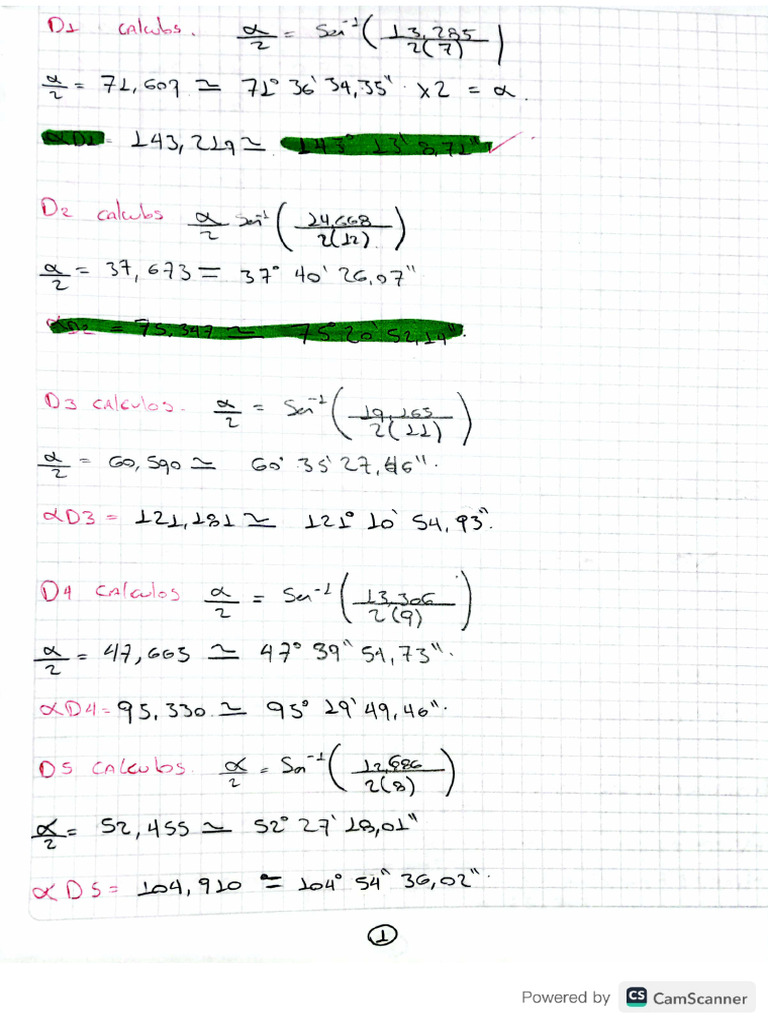 D1 calculos. α/2 = Sen⁻¹(13,285/2(7))
α/2 = 71,607 ≃ 71° 36' 34,35" x2 = α.
αD1 = 143,219 ≃ 143° 13' 8,71"
D2 calculos α/2 Sen⁻¹(24,668/2(12))
α/2 = 37,673 = 37° 40' 26,07"
αD2 = 75,347 ≃ 75° 20' 52,14".
D3 calculos. α/2 = Sen⁻¹(19,165/2(11))
α/2 = 60,590 ≃ 60° 35' 27,46".
αD3 = 121,181 ≃ 121° 10' 54,93".
D4 calculos α/2 = Sen⁻¹(13,306/2(9))
α/2 = 47,665 ≃ 47° 39" 54,73".
αD4 = 95,330 ≃ 95° 19' 49,46".
D5 calculos. α/2 = Sen⁻¹(12,686/2(8))
α/2 = 52,455 ≃ 52° 27' 18,01"
αD5 = 104,910 = 104° 54" 36,02".
1
Powered by CS CamScanner